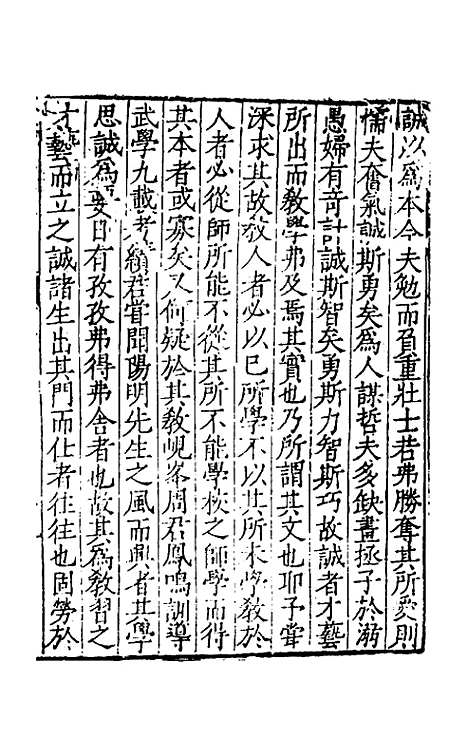 誠以爲本今夫勉而負重壯士若弗勝奪其所愛則
懦夫奮氣誠斯勇矣爲人謀哲夫多缺畫拯子於溺
愚婦有奇計誠斯智矣勇斯力智斯巧故誠者才藝
所出而教學弗及焉其實也乃所謂其文也耶予嘗
深求其故教人者必以已所學不以其所未學教於
人者必從師所能不從其所不能學校之師學而得
其本者或寡矣又何疑於其教峴峯周君鳳鳴訓導
武學九載考績君嘗聞陽明先生之風而興者其學
思誠爲要日有孜孜弗得弗舍者也故其爲教習之
才藝而立之誠諸生出其門而仕者往往也固勞於